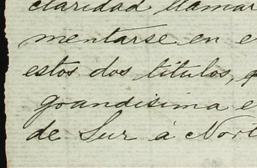 claridad llamar
mentarse en e
estos dos titulos, q
grandisima e
de Sur á Nort